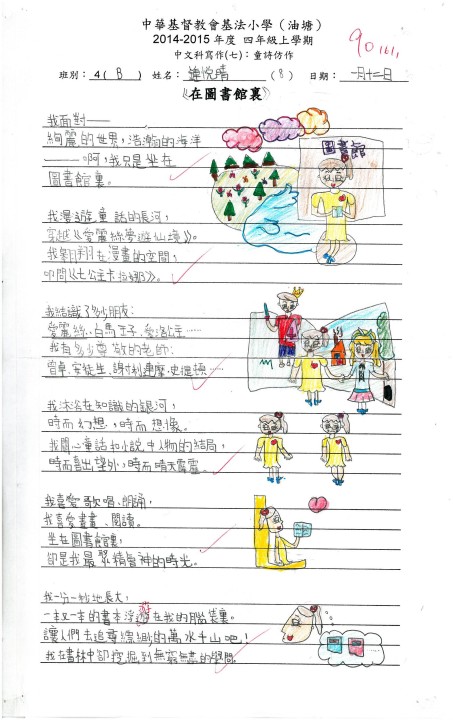 中華基督教會基法小學（油塘）
2014-2015年度 四年級上學期
中文科寫作(七)：童詩仿作
班別：4(B) 姓名：鍾悅晴 (8) 日期：一月十二日
90
《在圖書館裏》
我面對——
絢麗的世界，浩瀚的海洋
——啊，我只是坐在
圖書館裏。
圖書館
我漫遊童話的長河，
穿越《愛麗絲夢遊仙境》。
我翱翔在漫畫的空間，
叩問《七公主卡拉娜》。
我結識了多少朋友：
愛麗絲、白馬王子、愛洛公主……
我有多少尊敬的老師：
曾卓、安徒生、謝利連摩‧史提頓……
我沐浴在知識的銀河，
時而幻想，時而想像。
我關心童話和小說中人物的結局，
時而喜出望外，時而晴天霹靂。
我喜愛歌唱、朗誦，
我喜愛畫畫、閱讀。
坐在圖書館裏，
卻是我最聚精會神的時光。
我一分一秒地長大，
一本又一本的書本浮遊在我的腦袋裏。
讓人們去追尋縹緲的萬水千山吧！
我在書林中卻挖掘到無窮無盡的學問。